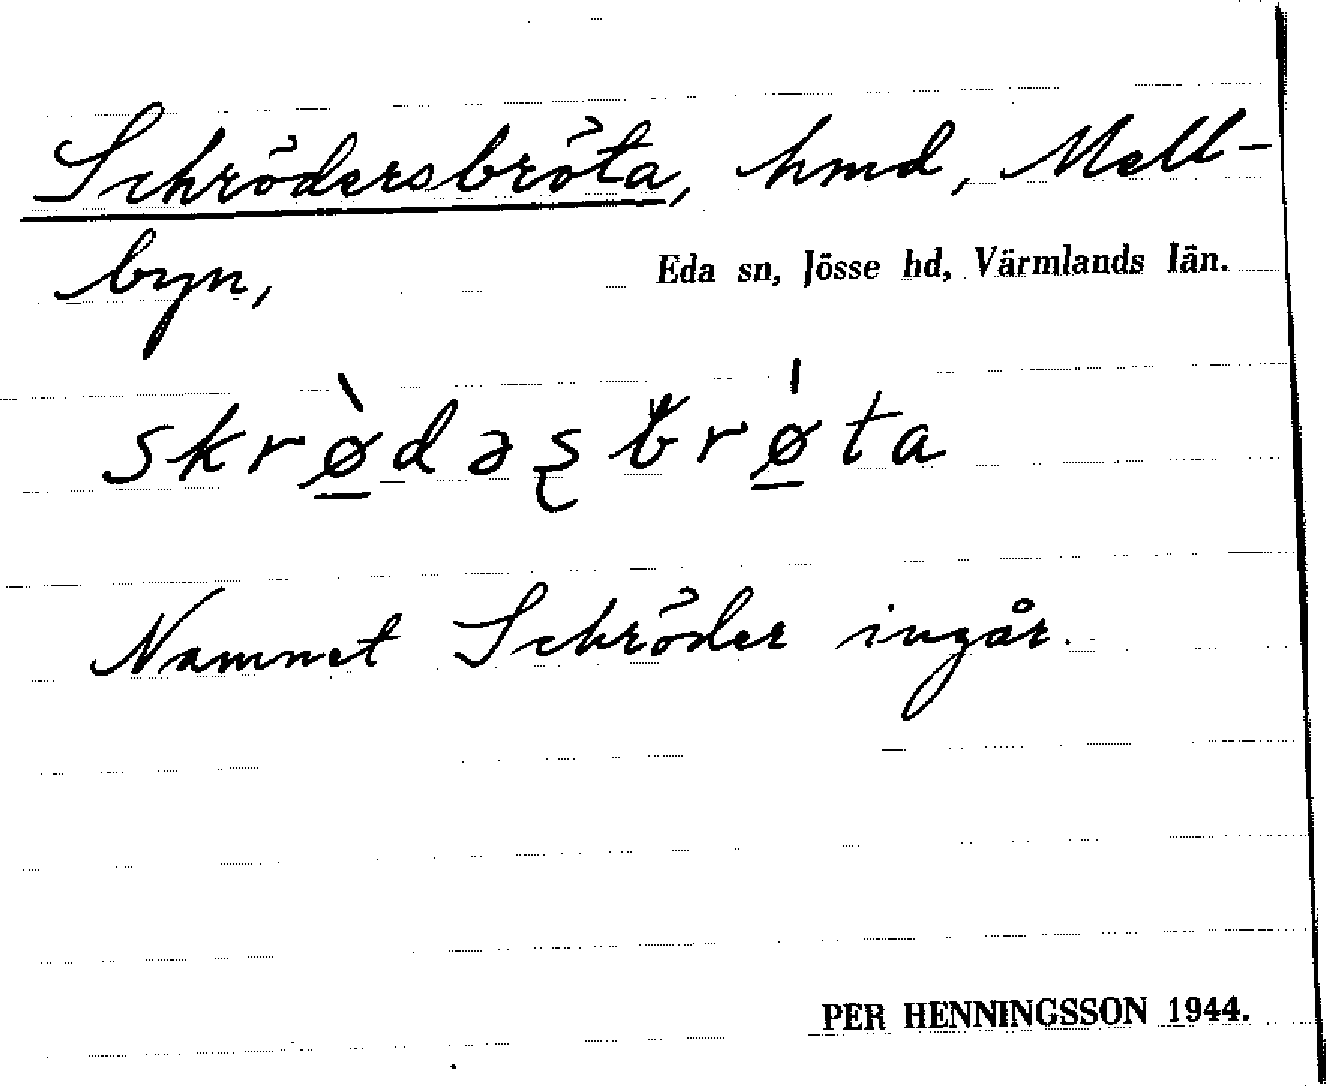 Schrödersbröta, hmd, Mell-
byn,
Eda sn, Jösse hd, Värmlands län.
skrø̲̀dəʂbrǿ̲ta
Namnet Schröder ingår.
PER HENNINGSSON 1944.